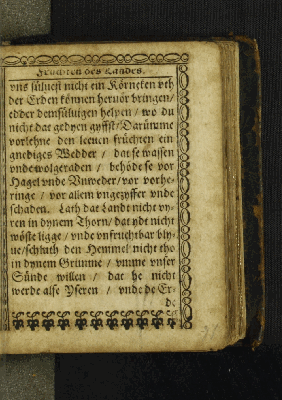 Früchten des Landes.
vns sülnest nicht ein Körneken vth
der Erden können heruör bringen/
edder demsüluigen helpen / wo du
nicht dat gedyen gyffst/Darümme
vorlehne den leeuen früchten ein
gnediges Wedder / dat se wassen
vnde wolgeraden / behöde se vor
Hagel vnde Vnweder/ vor vorhe-
ringe / vor allem vngezyffer vnde
schaden. Lath dat Landt nicht vn-
ren in dynem Thorn/ dat ydt nicht
wöste ligge / vnde vnfruchtbar bly-
ue/schluth den Hemmel nicht tho
in dynem Grimme / vmme vnser
Sünde willen / dat he nicht
werde alse Yseren / vnde de Er-
de